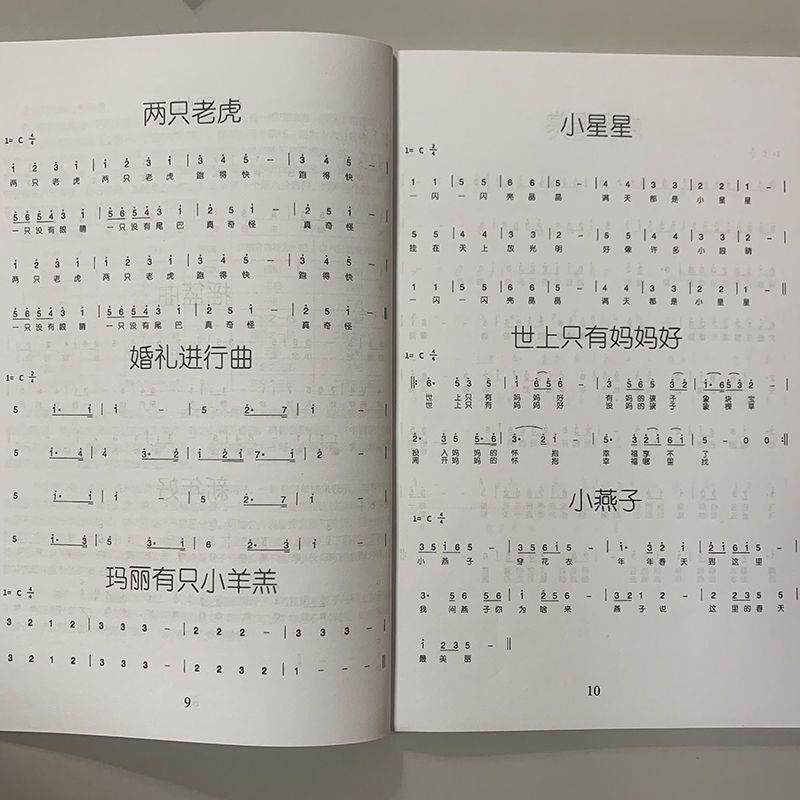 两只老虎
1= C 4/4
1 2 3 1 | 1 2 3 1 | 3 4 5 - | 3 4 5 - |
两 只 老 虎 两 只 老 虎 跑 得 快 跑 得 快
5 6 5 4 3 1 | 5 6 5 4 3 1 | 2 5 1 - | 2 5 1 - |
一只没有眼睛 一只没有尾 巴 真 奇 怪 真 奇 怪
1 2 3 1 | 1 2 3 1 | 3 4 5 - | 3 4 5 - |
两 只 老 虎 两 只 老 虎 跑 得 快 跑 得 快
5 6 5 4 3 1 | 5 6 5 4 3 1 | 2 5 1 - | 2 5 1 - ‖
一只没有眼睛 一只没有尾 巴 真 奇 怪 真 奇 怪
婚礼进行曲
1= C 2/4
5 i· i | i - | 5 2· 7 | i - |
5 i· 4 | 4 3· 2 | i 2 i 7· i | 2 - |
5 i· i | i - | 5 2· 7 | i - |
5 i· 3 | 5 3· i | 6 2· 3 | i - ‖
玛丽有只小羊羔
1= C 4/4
3 2 1 2 | 3 3 3 - | 2 2 2 - | 3 3 3 - |
3 2 1 2 | 3 3 3 - | 2 2 3 2 | 1 - - - ‖
9
小星星
1= C 2/4
1 1 | 5 5 | 6 6 | 5 - | 4 4 | 3 3 | 2 2 | 1 - |
一 闪 一 闪 亮 晶 晶 满 天 都 是 小 星 星
5 5 | 4 4 | 3 3 | 2 - | 5 5 | 4 4 | 3 3 | 2 - |
挂 在 天 上 放 光 明 好 像 许 多 小 眼 睛
1 1 | 5 5 | 6 6 | 5 - | 4 4 | 3 3 | 2 2 | 1 - ‖
一 闪 一 闪 亮 晶 晶 满 天 都 是 小 星 星
世上只有妈妈好
1= C 4/4
‖: 6· 5 3 5 | i 6 5 6 - | 3 5 6 5 3 2 | 1 6 5 3 2 |
世 上 只 有 妈 妈 好 有 妈 的 孩 子 象 块 宝
世 上 只 有 妈 妈 好 没 妈 的 孩 子 象 棵 草
2· 3 5 5· 6 | 3 2 1 - | 5· 3 2 1 6 1 | 5 - 0 0 :‖
投 入 妈 妈 的 怀 抱 幸 福 享 不 了
离 开 妈 妈 的 怀 抱 幸 福 哪 里 找
小燕子
1= C 4/4
3 5 i 6 5 - | 3 5 6 i 5 - | i· 3 2 i | 2 i 6 i 5 - |
小 燕 子 穿 花 衣 年 年 春 天 到 这 里
3· 5 6 5 6 | i 2 5 6 - | 3 3 2 1 2 - | 2 2 3 5 5 - |
我 问 燕子你 为 啥 来 燕 子 说 这 里 的 春 天
i 2 3 5 - ‖
最 美 丽
10